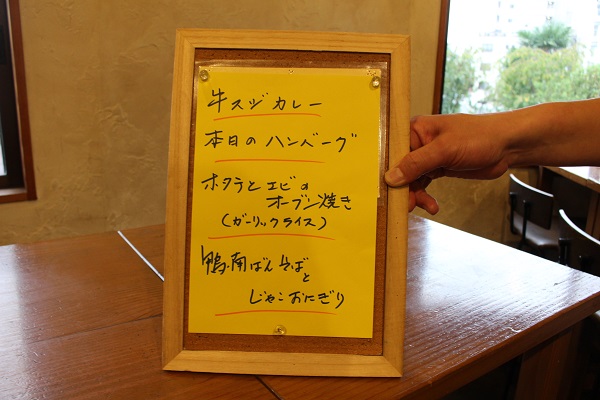 牛スジカレー
本日のハンバーグ
ホタテとエビの
オーブン焼き
(ガーリックライス)
鴨南ばんそばと
じゃこおにぎり